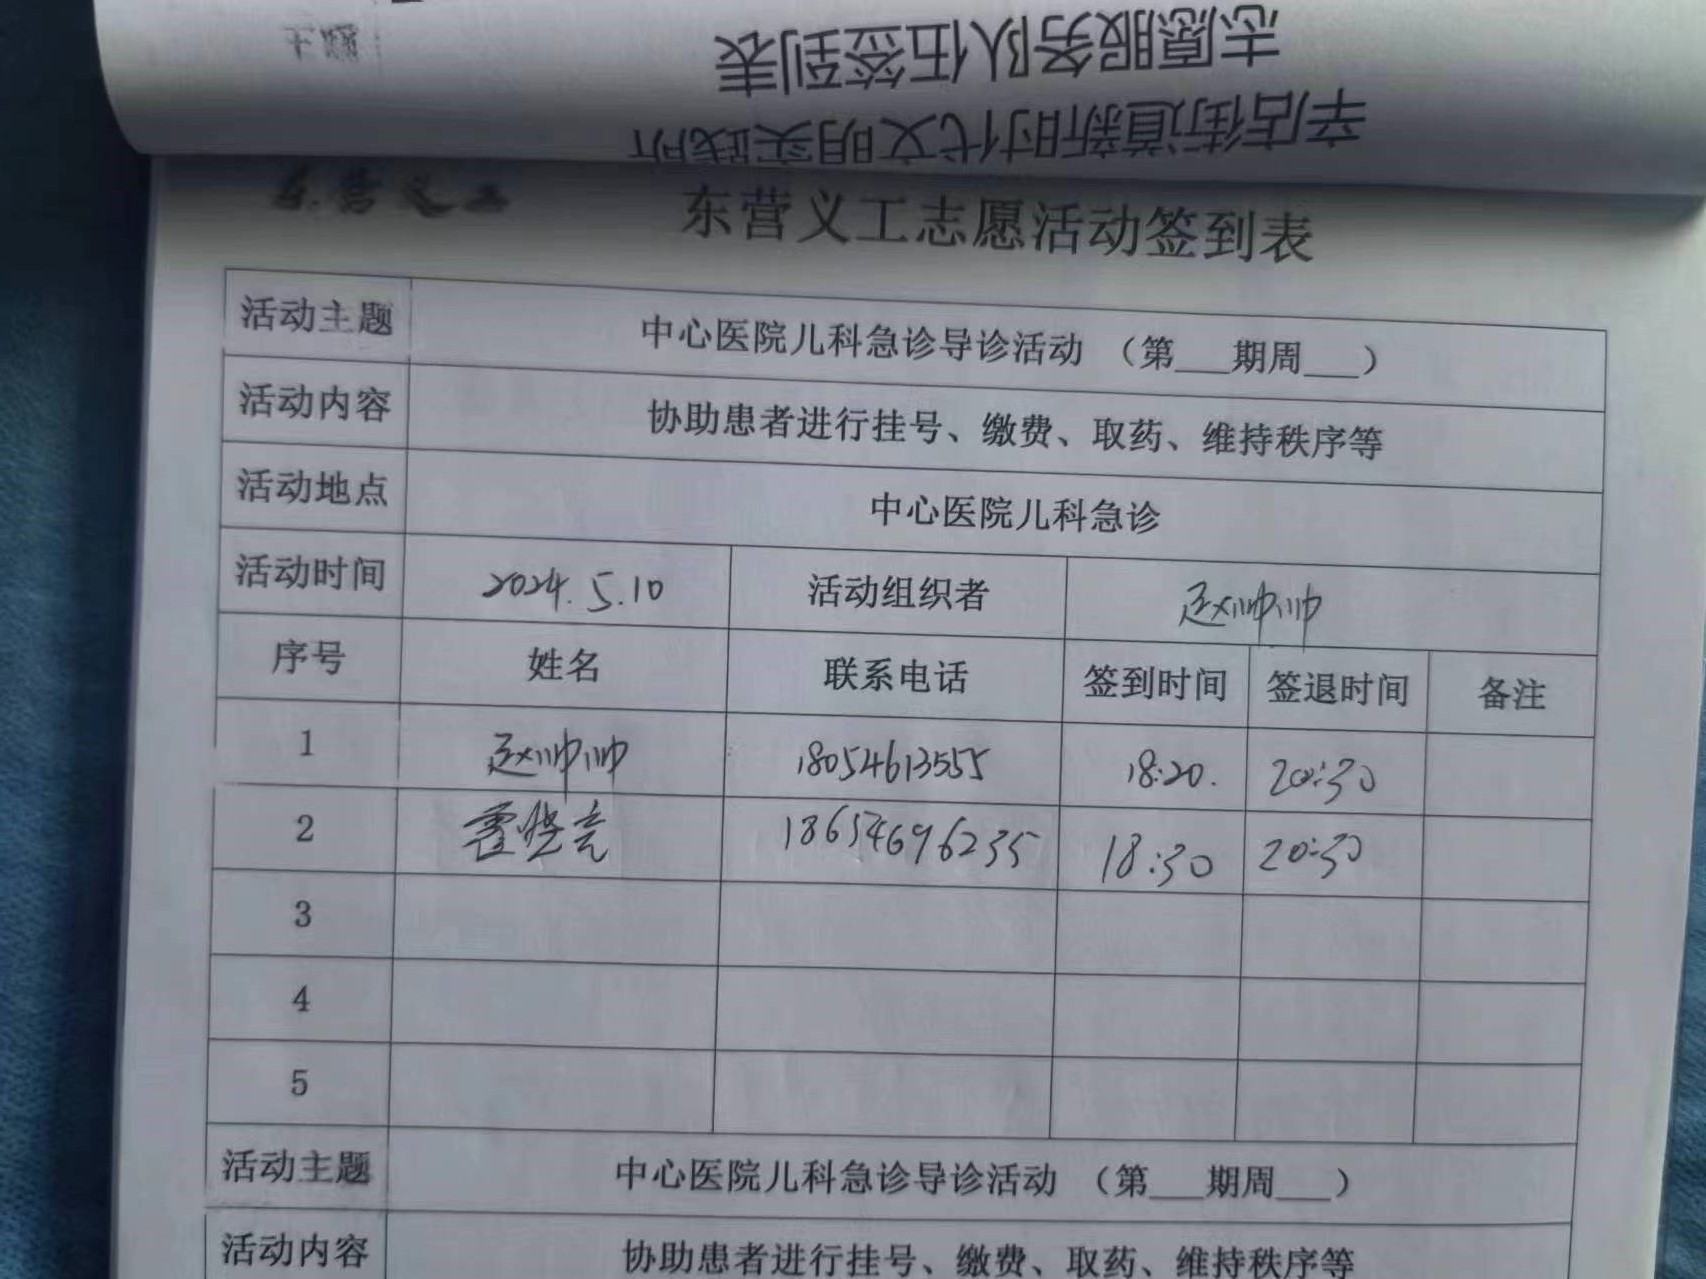 志愿服务队伍签到表
辛店街道新时代文明实践所
主题
东营义工
东营义工志愿活动签到表
活动主题 中心医院儿科急诊导诊活动 （第___期周___）
活动内容 协助患者进行挂号、缴费、取药、维持秩序等
活动地点 中心医院儿科急诊
活动时间 2024.5.10 活动组织者 赵帅帅
序号 姓名 联系电话 签到时间 签退时间 备注
1 赵帅帅 18054613555 18:20. 20:30
2 霍晓亮 18654696235 18:30 20:30
3
4
5
活动主题 中心医院儿科急诊导诊活动 （第___期周___）
活动内容 协助患者进行挂号、缴费、取药、维持秩序等